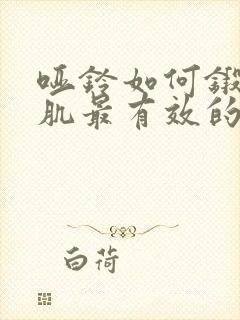 哑铃如何锻
肌最有效的
白荷